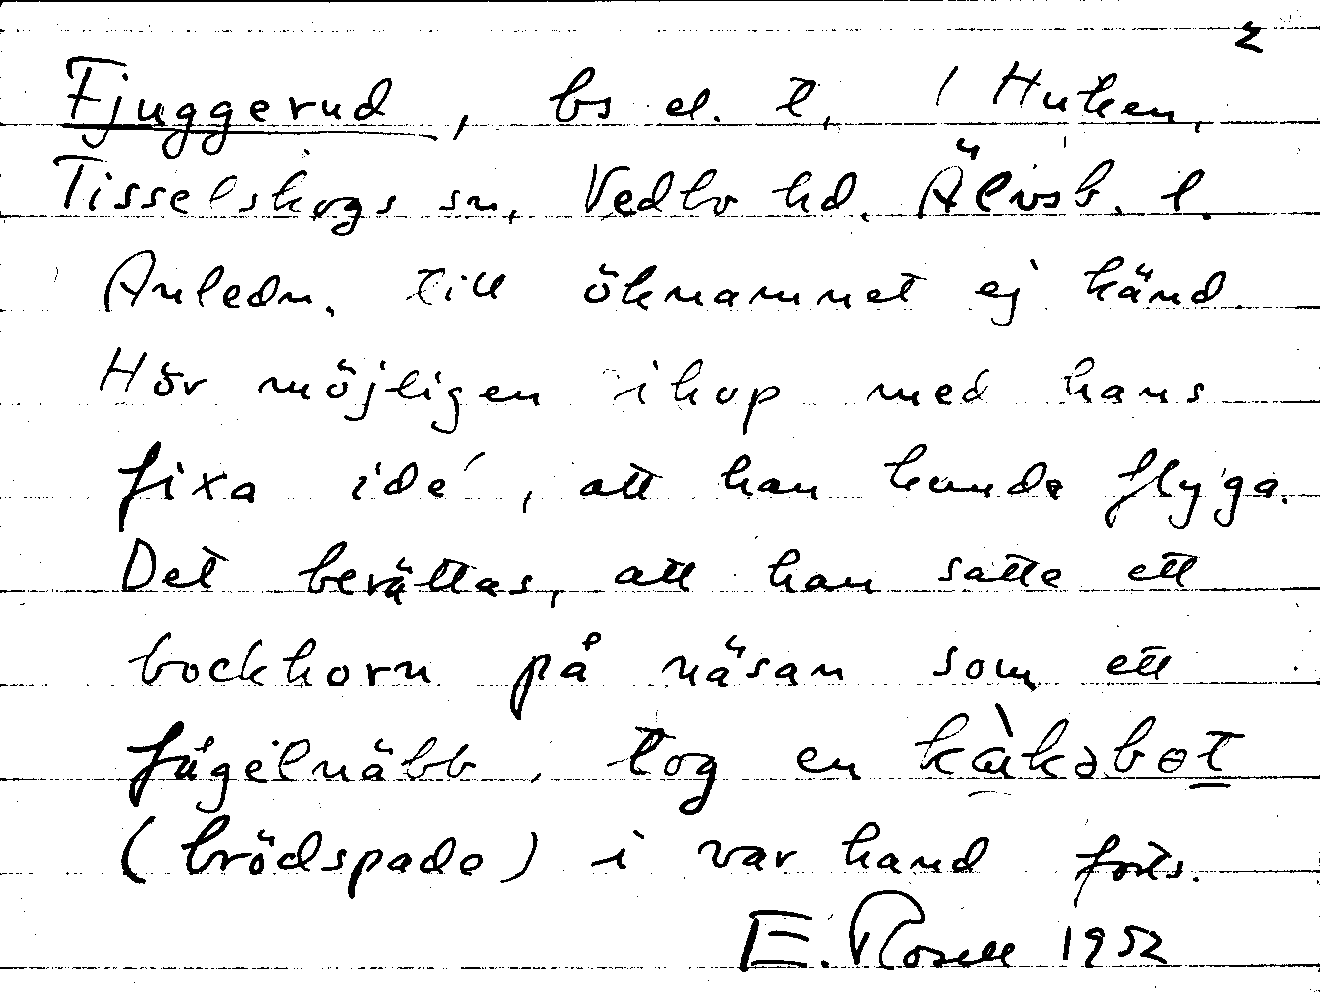 2
Fjuggerud, bs el. t, i Huken,
Tisselskogs sn, Vedbo hd. Älvsb. l.
Anledn. till öknamnet ej känd.
Hör möjligen ihop med hans
fixa idé, att han kunde flyga.
Det berättas, att han satte ett
bockhorn på näsan som ett
fågelnäbb, tog en kàkəbɵt
(brödspade) i var hand forts.
E. Rosell 1952